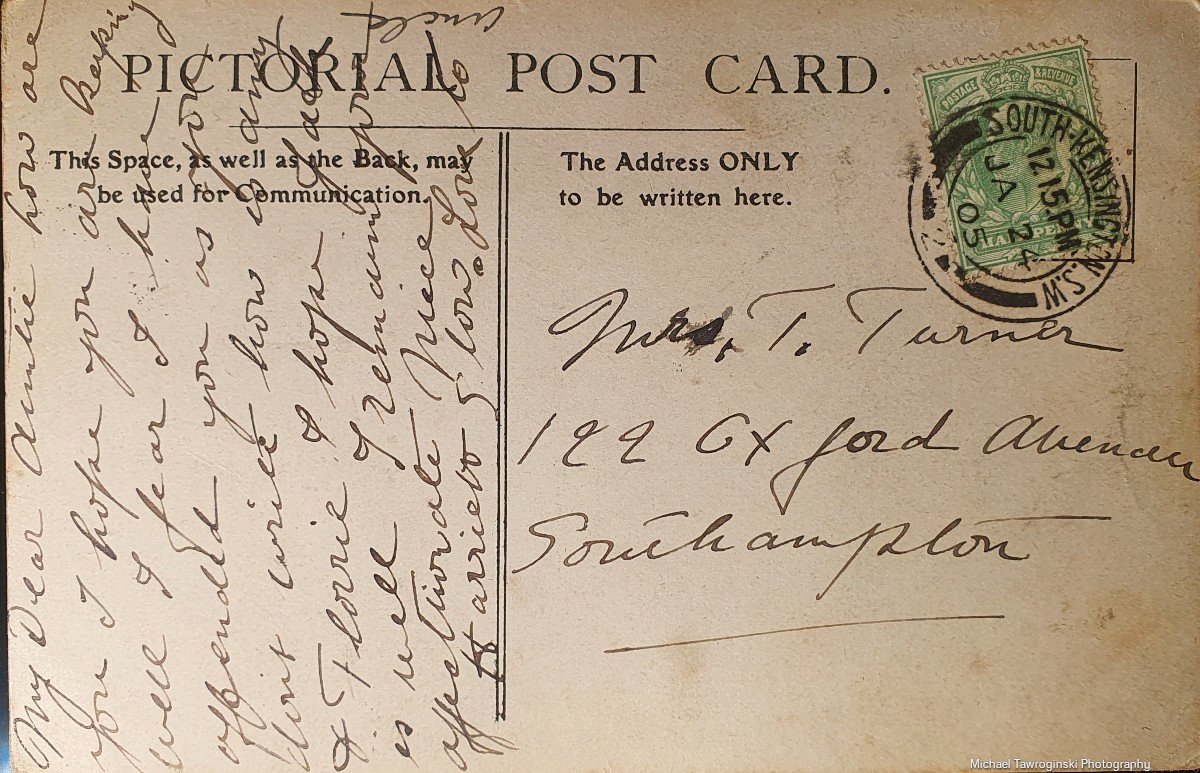 PICTORIAL POST CARD.
This Space, as well as the Back, may
be used for Communication.
The Address ONLY
to be written here.
POSTAGE & REVENUE
HALFPENNY
SOUTH-KENSINGTON. S.W.
12 15.PM
JA 24
05
My Dear Auntie how are
you I hope you are keeping
well I fear I have
offended you as you
dont write how is
& Florrie I hope Jack
is well I remain your
affectionate Niece
Love to
uncle
Mrs. T. Turner
199 Oxford Avenue
Southampton
Michael Tawroginski Photography